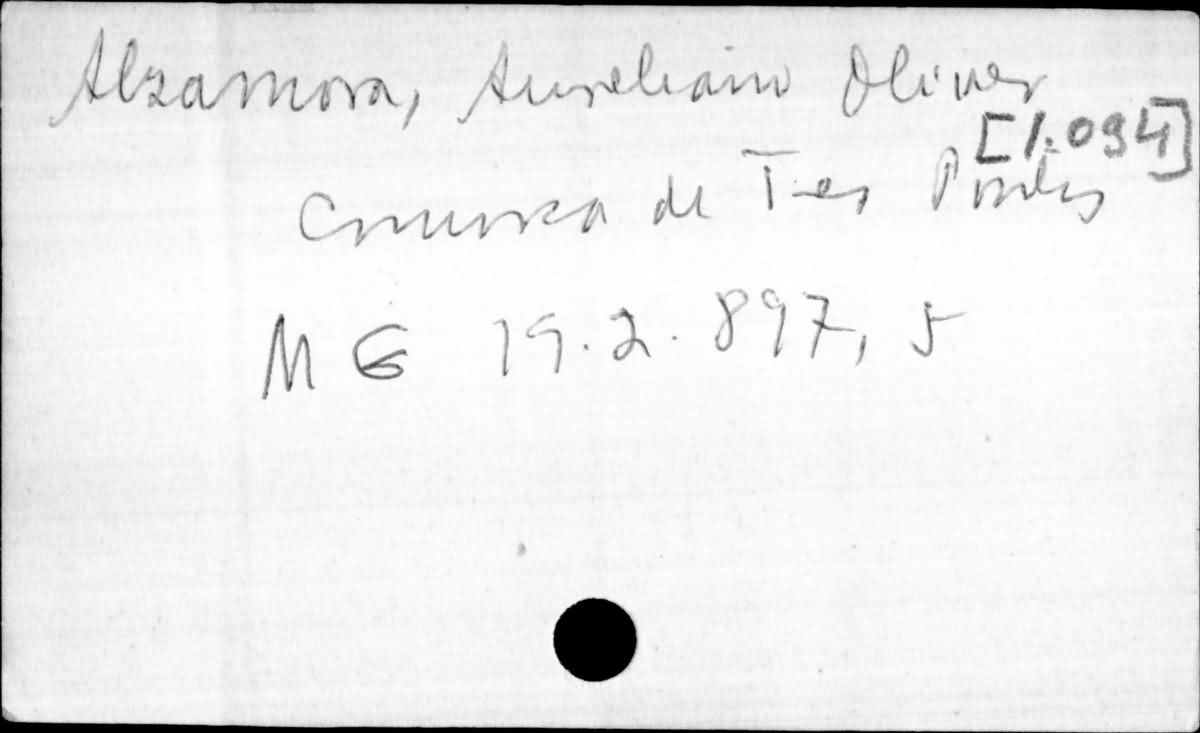 Alzamora, Aureliano Oliver
[1.094]
Comarca de Tres Pontes
M G 19.2.897, 5